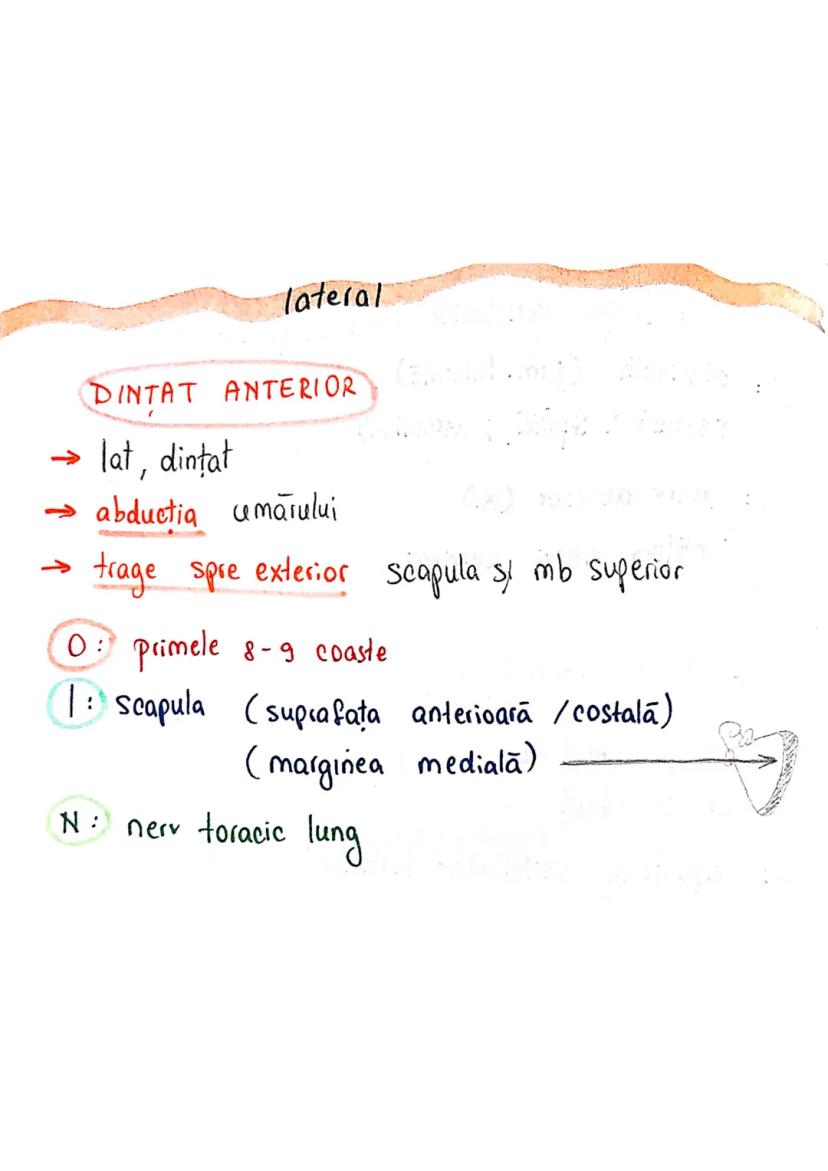 lateral
DINȚAT ANTERIOR
→ lat, dințat
→ abducția umărului
→ trage spre exterior scapula și mb superior
O: primele 8-9 coaste
I: scapula (suprafața anterioară / costală)
(marginea medială)
N: nerv toracic lung